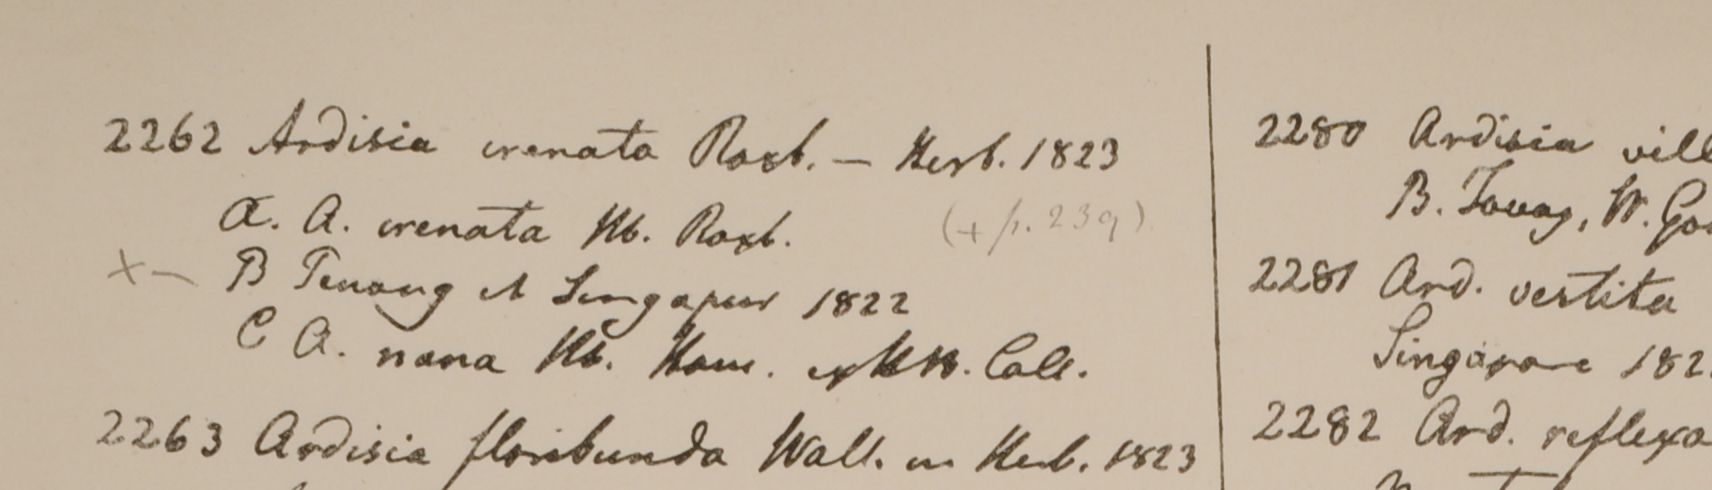 2262 Ardisia crenata Roxb. — Herb. 1823
A. A. crenata Hb. Roxb. (+ p. 239)
x — B Penang et Singapur 1822
C A. nana Hb. Ham. Coll.
2263 Ardisia floribunda Wall. in Herb. 1823
2280 Ardisia vill
B. Tavoy, W. Go
2281 Ard. vestita
Singapore 182
2282 Ard. reflexa